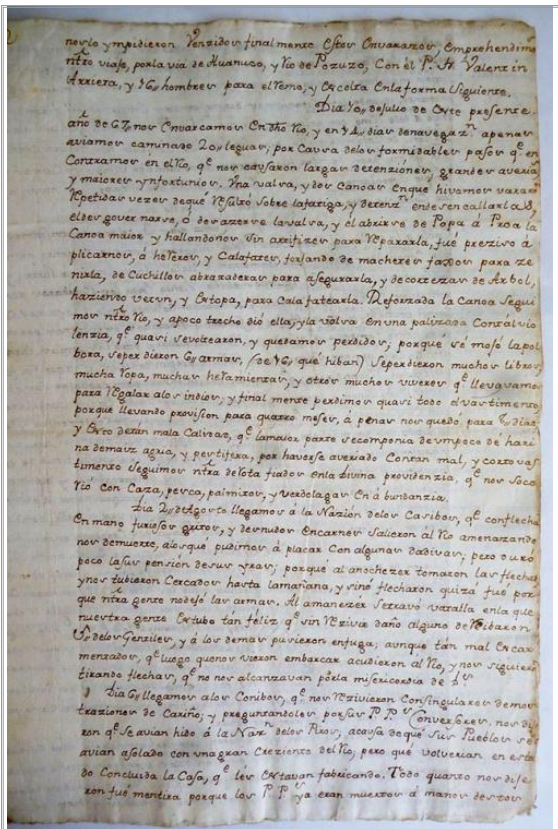 nos lo ympidieron Venzidos finalmente Estos Envarazos, Emprehendimos
ntro viaje, por la via de Huanuco, y Rio de Pozuzo, Con el P. Fr Valentin
Arriera, y 16,, hombres para el Remo, y Escolta En la forma siguiente.
Dia 10,, de Julio de Este presente
año de 67,, nos Envarcamos En dho Rio, y en 14,, dias de navegazn apenas
aviamos caminado 20,, leguas, por Causa de los formidables pasos qe en
Contramos en el Rio, qe nos causaron largas detenziones, grandes averias
y maiores ynfortunios. Una valsa, y dos Canoas En que hivamos vararon
Repetidas vezes de que Resultó sobre la fatiga, y detenzn en desencallarlas,
el desgovernarse, ó deshazerse la valsa, y el abrirse de Popa á Proa la
Canoa maior y hallandonos sin artifize para Repararla, fue prezisso á
plicarnos, á herreros, y Calafates, forjando de machetes para ze
ñirla, de Cuchillos abrazaderas para asegurarla, y de cortezas de Arbol,
haziendo Estopa, para Calafatearla. Reforzada la Canoa Segui
mos ntro Rio, y a poco trecho dió ella, y la valsa En una palizada Con tal vio
lenzia, qe quasi se voltearon, y quedamos perdidos; porque se mojó la pol
bora, se perdieron 6,, armas, (de 16,, que hiban) Se perdieron muchos libros
mucha Ropa, muchas herramientas, y otros muchos viveres qe llevavamos
para Regalar a los indios, y finalmente perdimos quasi todo el vastimento
porque llevando provision para quatro meses, á penas nos quedó para 6,, dias
y Esto de tan mala Calidad, qe la maior parte se componia de un poco de hari
na de maiz agua, y pestifera, por haverse averiado Con tan mal, y corto vas
timento seguimos ntra derota fiados en la Divina providenzia, qe nos soco
rrió con Caza, pesca, palmitos, y verdolagas En á bundanzia.
Dia 2,, de Agosto llegamos á la Nazión de los Casibos, qe con flecha
En mano furiosos gritos, y desnudos En carnes salieron al Rio amenazando
nos de muerte, á los qe pudimos á placar Con algunas dadivas; pero duró
poco la suspensión de sus yras; porque al anochezer tomaron las flechas
y nos tubieron Cercados hasta la mañana, y si no flecharon quiza fué por
que ntra gente no dejó las armas. Al amanezer se travó vatalla en la que
nuestra gente Estubo tan feliz qe sin Rezivir daño alguno de
de los Gentiles, y á los demas pusieron en fuga; aunque tan mal Escar
mentados, qe luego que nos vieron embarcar acudieron al Rio, y nos siguieron
tirando flechas, qe no nos alcanzavan por la misericordia de Ds
Dia 6,, llegamos a los Conibos, qe nos Rezivieron Con singulares demos
traziones de Cariño; y preguntandoles por sus P.P. Conversores, nos dije
ron qe se avian hido á la Nazn de los Piros; á causa de que sus Pueblos se
avian asolado con una gran Creziente del Rio; pero que volverian en estan
do Concluida la Casa, qe les Estavan fabricando. Todo quanto nos dije
ron fué mentira porque los P.P. ya eran muertos á manos de estos